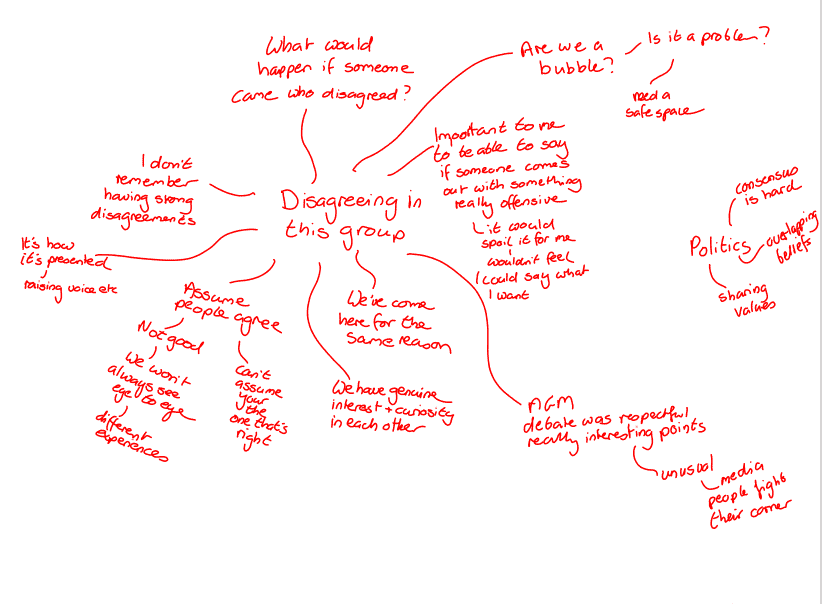 What would
happen if someone
came who disagreed?
Are we a
bubble?
Is it a problem?
need a
safe space
Important to me
to be able to say
if someone comes
out with something
really offensive
it would
spoil it for me
wouldn't feel
I could say what
I want
I don't
remember
having strong
disagreements
Disagreeing in
this group
consensus
is hard
Politics
overlapping
beliefs
sharing
values
It's how
it's presented
raising voice etc
Assume
people agree
Not good
We won't
always see
eye to eye
different
experiences
Can't
assume
your
the
one that's
right
We've come
here for the
same reason
We have genuine
interest + curiosity
in each other
AGM
debate was respectful
really interesting points
unusual
media
people fight
their corner